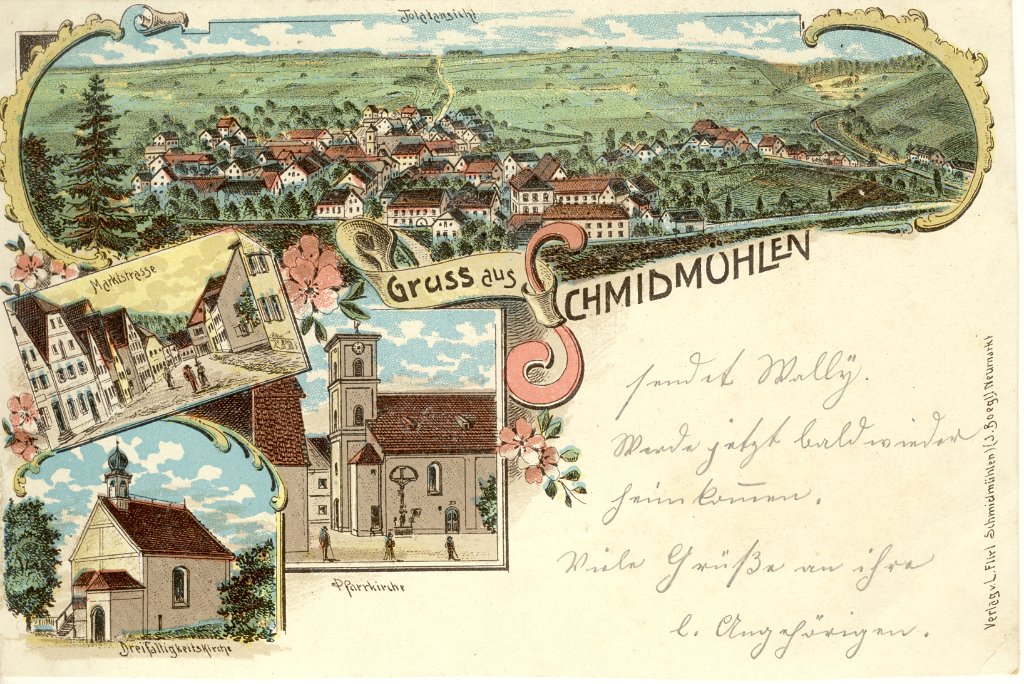 Totalansicht
Marktstrasse
Gruss aus SCHMIDMÜHLEN
sendet Wally.
Werde jetzt bald wieder
heimkom̅en.
Viele Grüße an ihre
l. Angehörigen.
Pfarrkirche
Dreifaltigkeitskirche
Verlag v. L. Flirl Schmidmühlen) (J. Boegl), Neumarkt